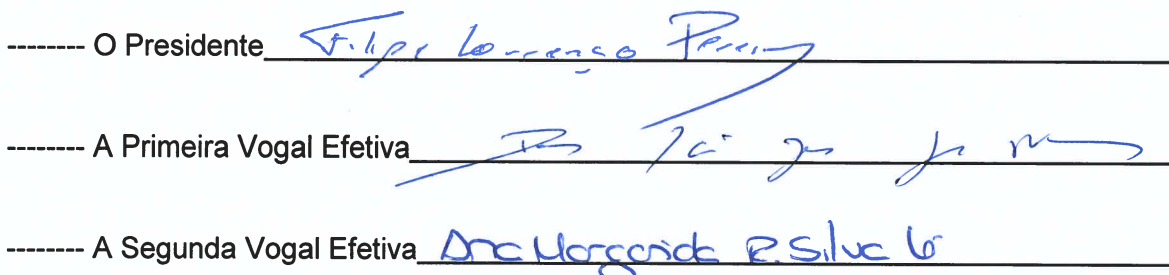 -------- O Presidente Filipe Lourenço Pereira
-------- A Primeira Vogal Efetiva
-------- A Segunda Vogal Efetiva Ana Margarida R. Silva Lé